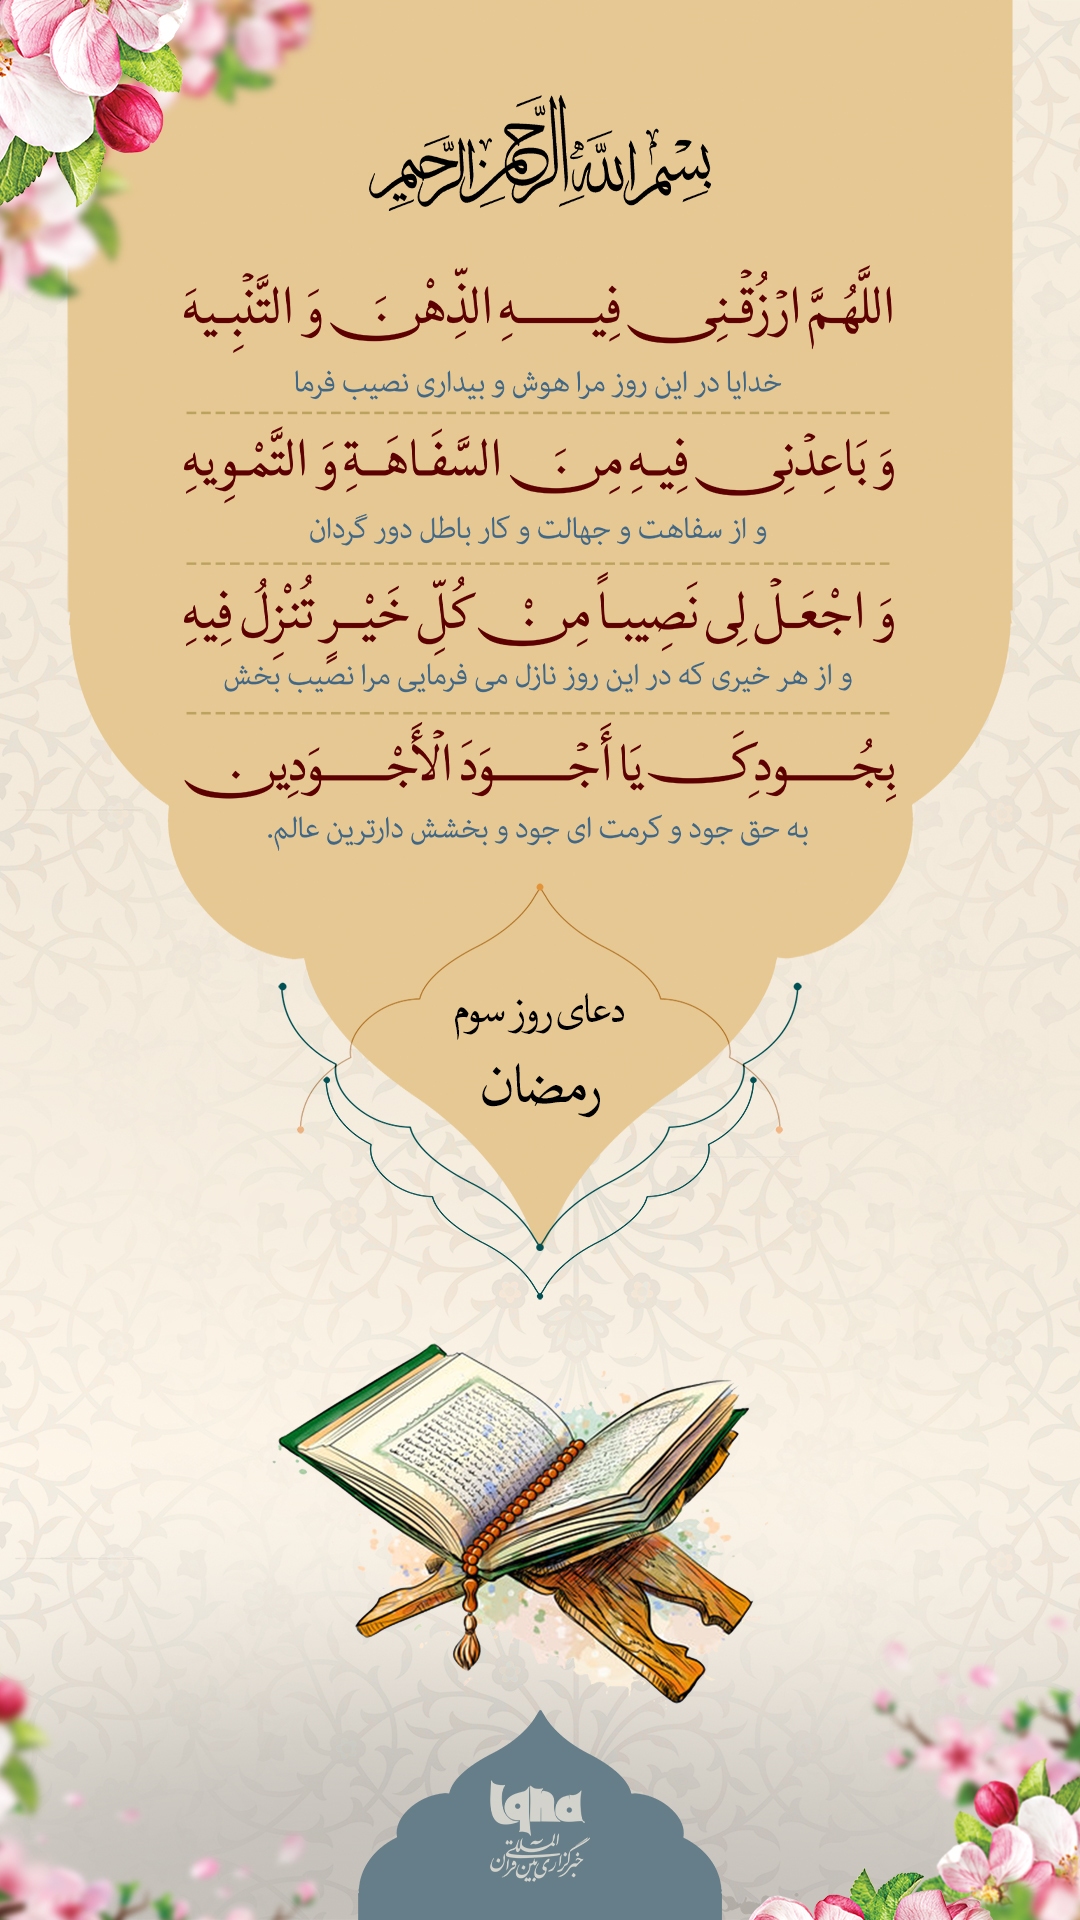 بِسْمِ اللَّهِ الرَّحْمَنِ الرَّحِيمِ
اللَّهُمَّ ارْزُقْنِی فِیهِ الذِّهْنَ وَ التَّنْبِیهَ
خدایا در این روز مرا هوش و بیداری نصیب فرما
وَ بَاعِدْنِی فِیهِ مِنَ السَّفَاهَةِ وَ التَّمْوِیهِ
و از سفاهت و جهالت و کار باطل دور گردان
وَ اجْعَلْ لِی نَصِیباً مِنْ کُلِّ خَیْرٍ تُنْزِلُ فِیهِ
و از هر خیری که در این روز نازل می فرمایی مرا نصیب بخش
بِجُودِکَ یَا أَجْوَدَ الْأَجْوَدِینَ
به حق جود و کرمت ای جود و بخشش دارترین عالم.
دعای روز سوم
رمضان
Iqna
خبرگزاری بین المللی قرآن